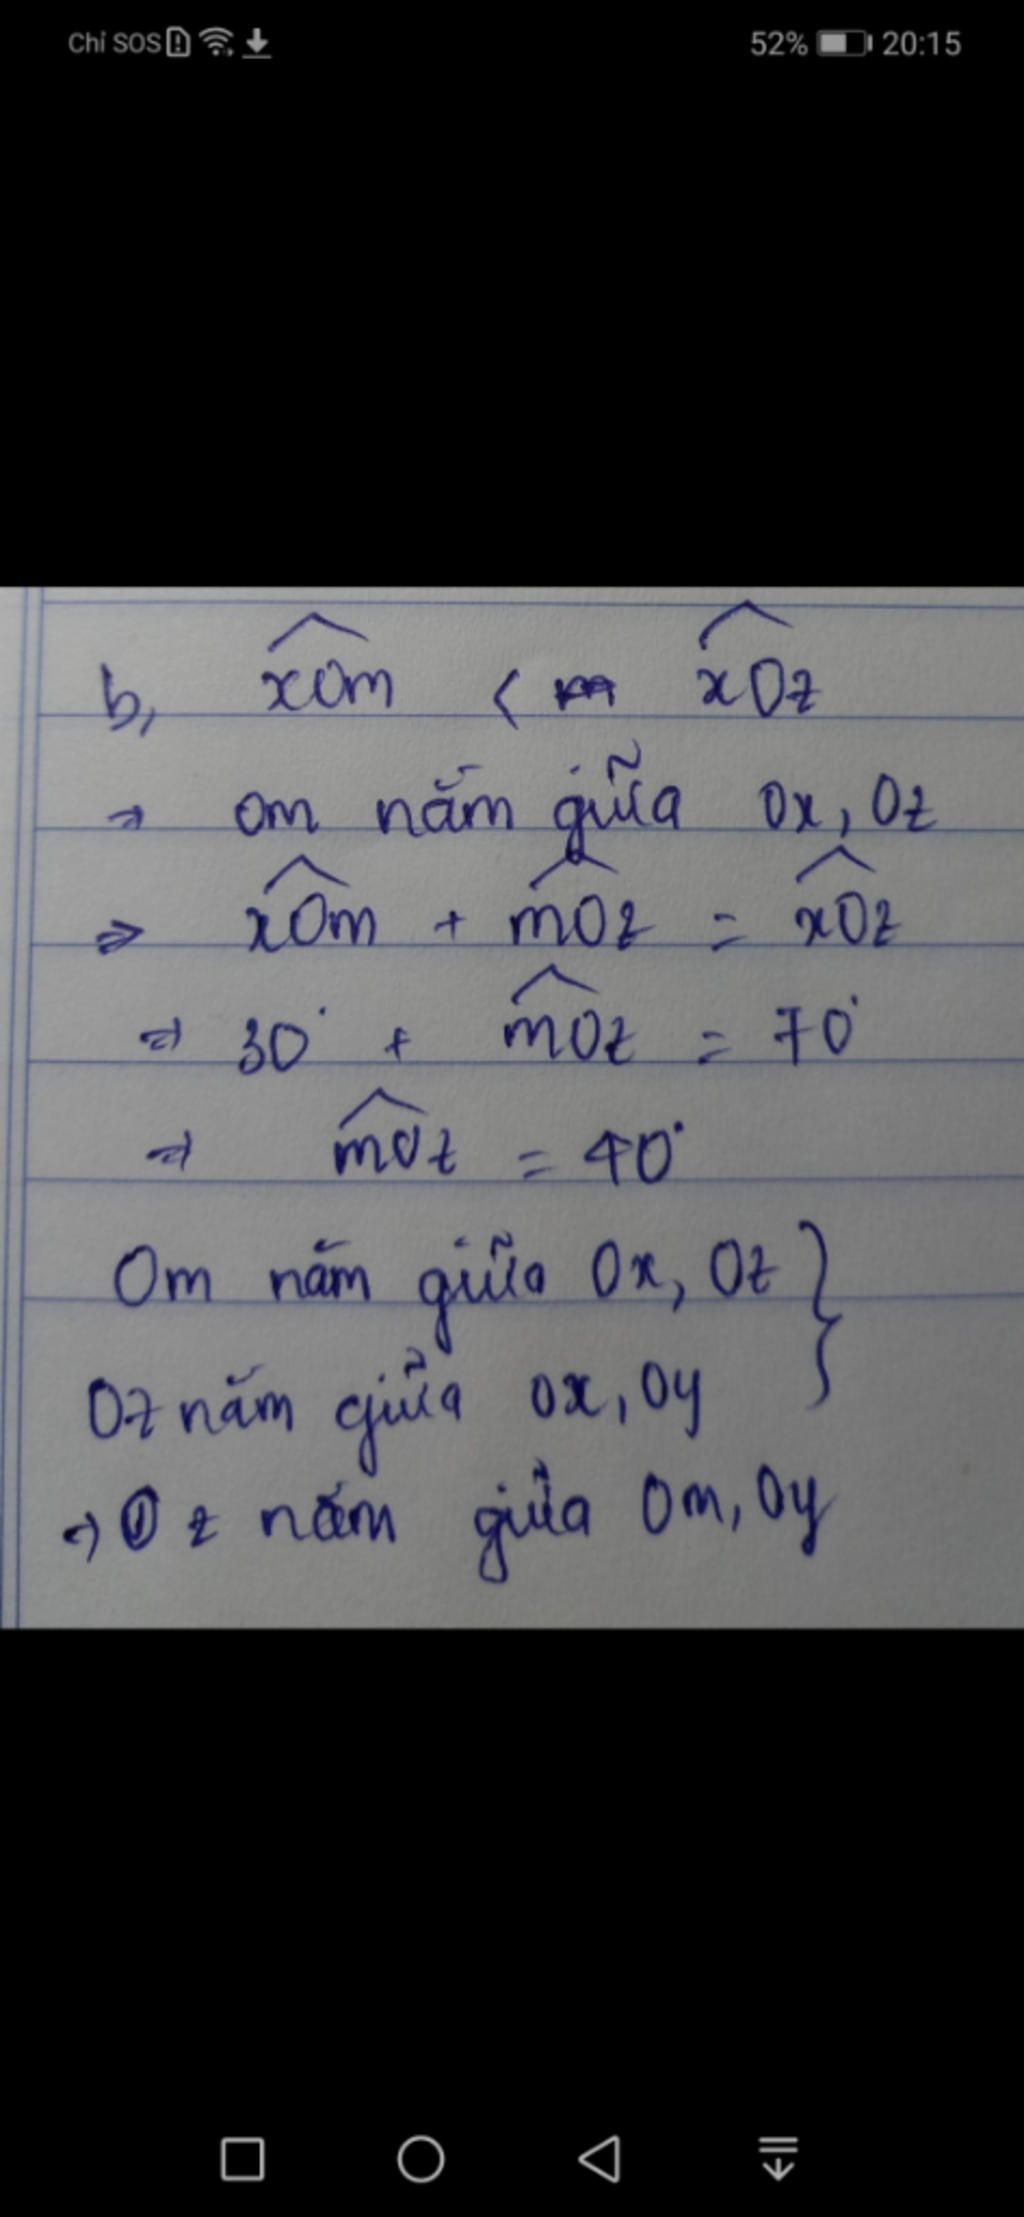 Chỉ SOS 52% 20:15
b, xOm < xOz
→ Om nằm giữa Ox, Oz
⇒ xOm + mOz = xOz
⇒ 30° + mOz = 70°
⇒ mOz = 40°
Om nằm giữa Ox, Oz }
Oz nằm giữa Ox, Oy
⇒ Oz nằm giữa Om, Oy